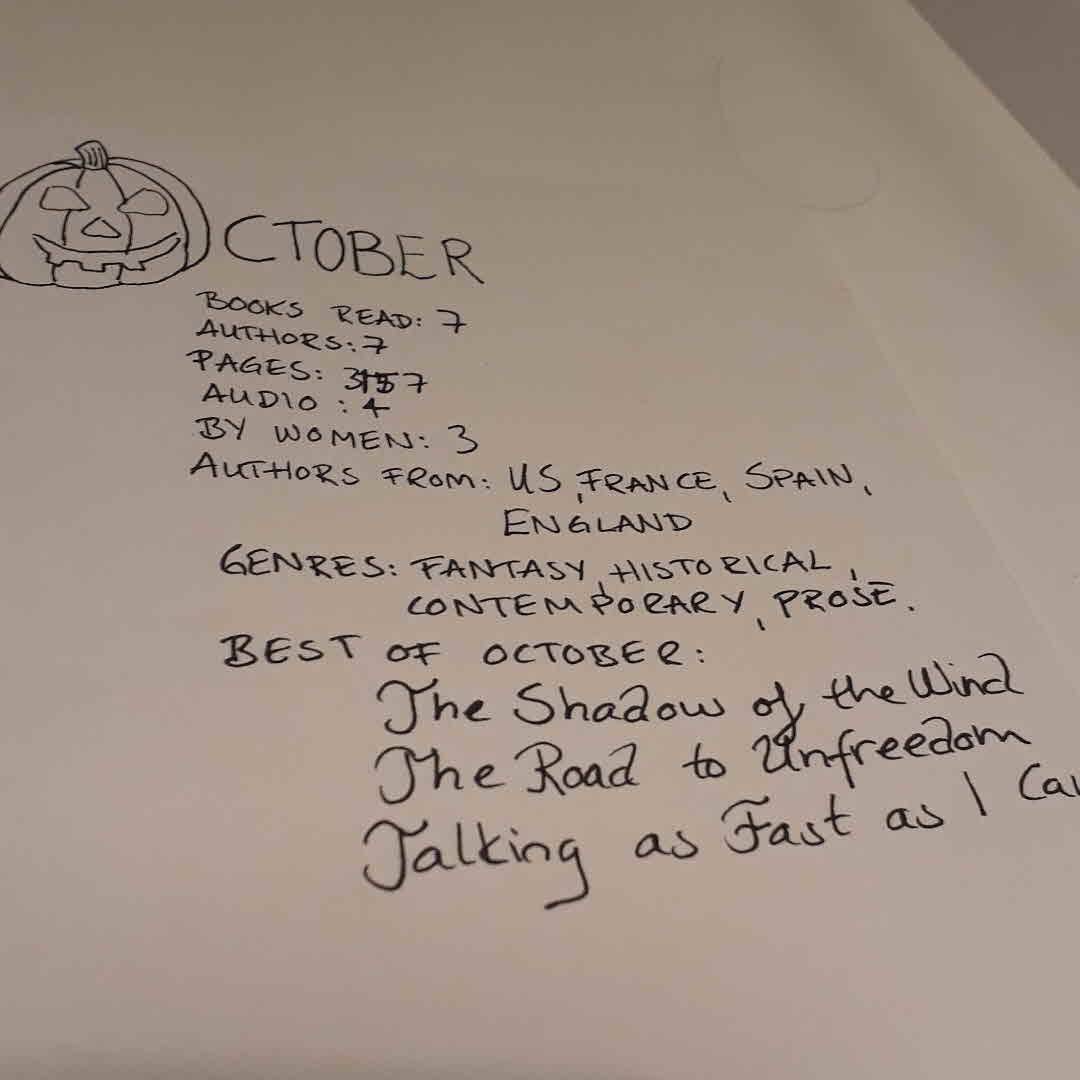 OCTOBER
BOOKS READ: 7
AUTHORS: 7
PAGES: 3157
AUDIO : 4
BY WOMEN: 3
AUTHORS FROM: US, FRANCE, SPAIN,
ENGLAND
GENRES: FANTASY, HISTORICAL,
CONTEMPORARY, PROSE.
BEST OF OCTOBER:
The Shadow of the Wind
The Road to Unfreedom
Talking as Fast as I Ca